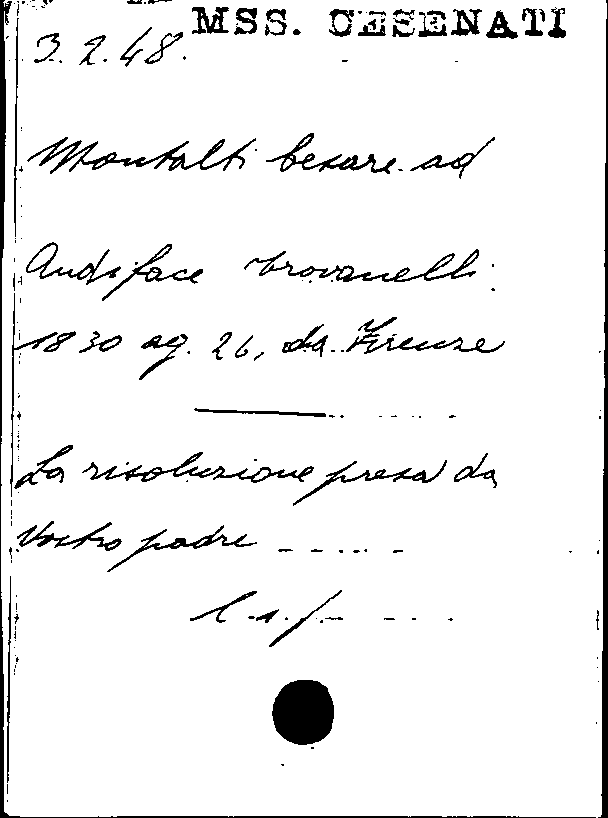 MSS. CESENATI
3.2.48.
Montalti Cesare ad
Audiface Trovanelli.
1830 ag. 26, da Firenze
La risoluzione presa da
Vostro padre ......
l.a.f.